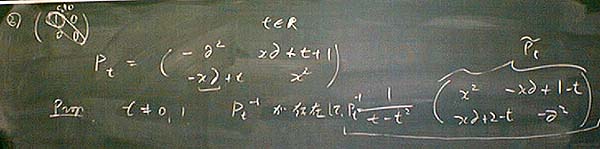 ② ( 1 0 0 0 ) t∈R
P_t = ( -∂² x∂+t+1 -x∂+t x² )
Prop t≠0,1 P_t⁻¹ が存在して, P_t⁻¹ = 1/(t-t²) ( x² -x∂+1-t x∂+2-t -∂² ) P̃_t